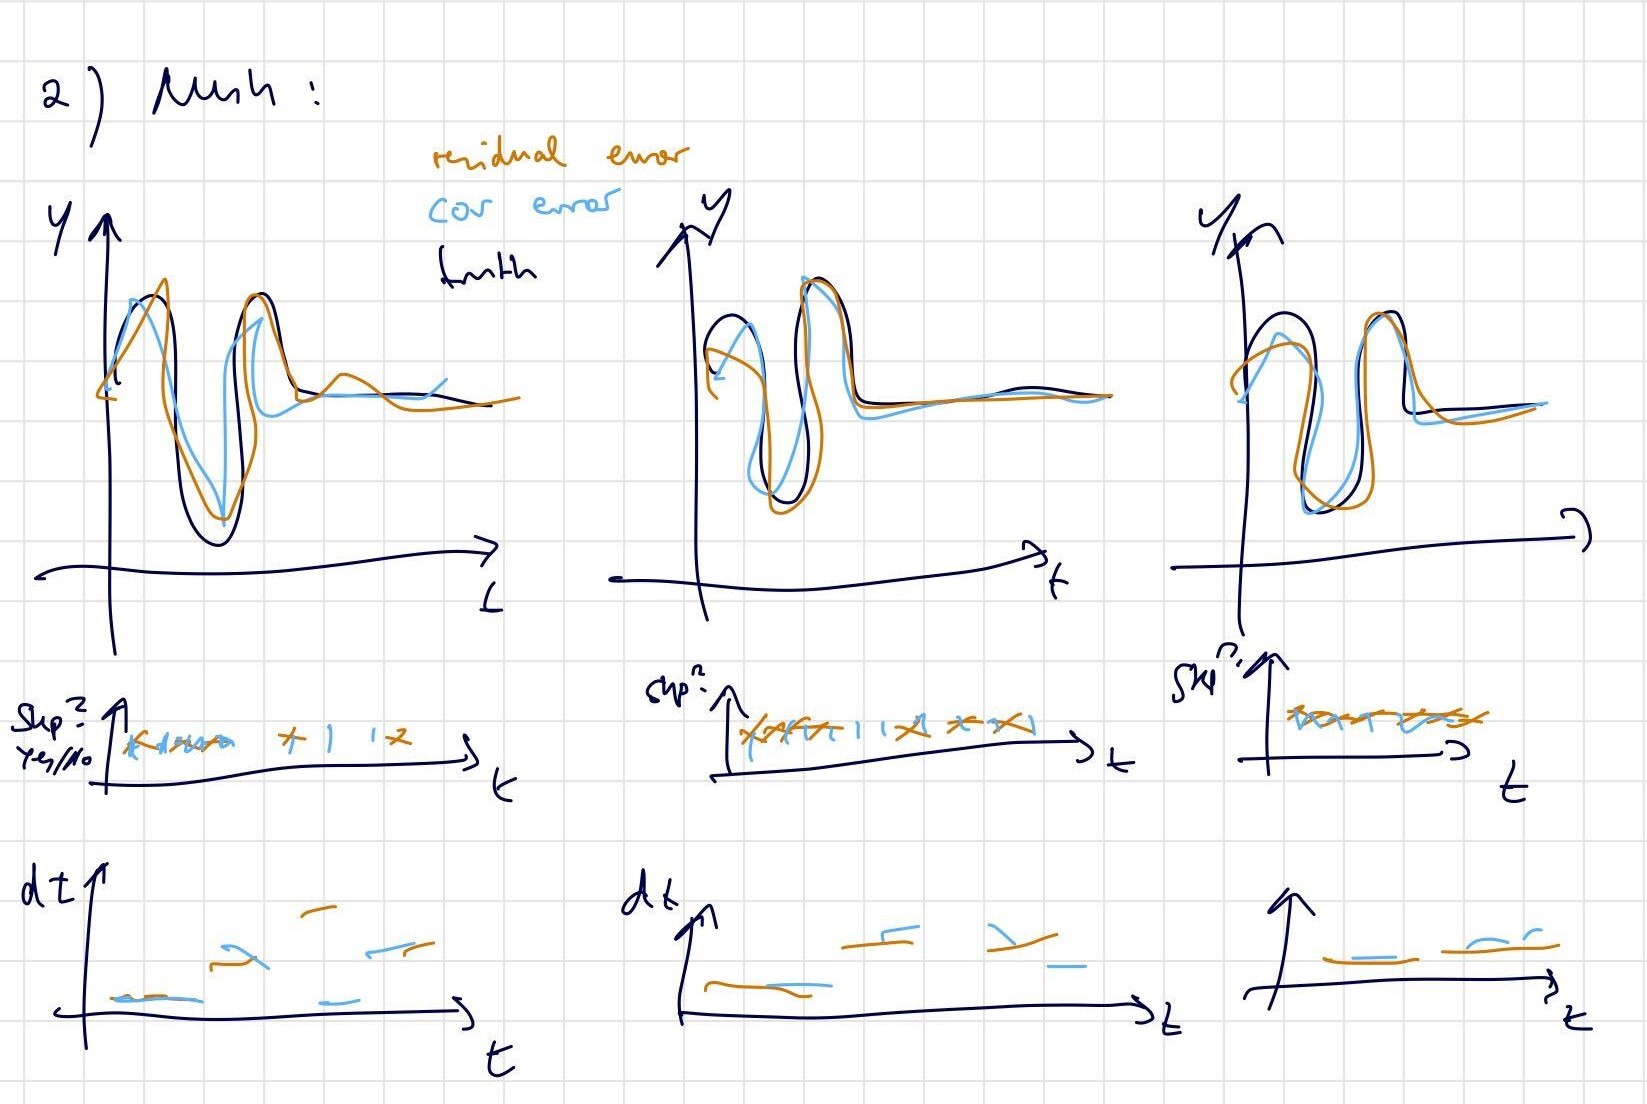 2)
residual error
cov error
truth
y
y
y
t
t
Skip?
Yes/No
Skip?
Skip?
t
t
t
dt
dt
t
t
t